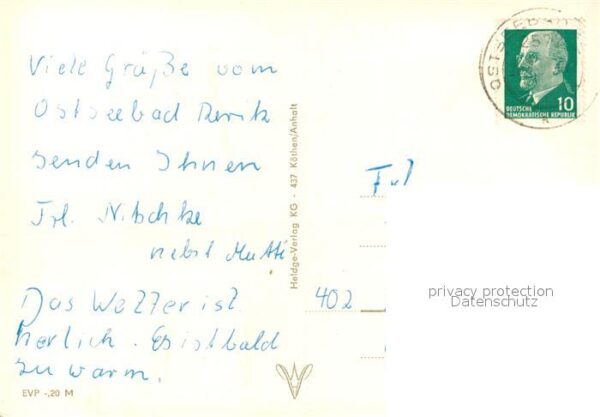 Viele Grüße vom
Ostseebad Rerik
senden Ihnen
Frl. Nitschke
nebst Mutti
Das Wetter ist
herlich. Es ist bald
zu warm.
EVP -,20 M
Heldge-Verlag KG - 437 Köthen/Anhalt
OSTSEEBAD
10
DEUTSCHE
DEMOKRATISCHE REPUBLIK
402
privacy protection
Datenschutz